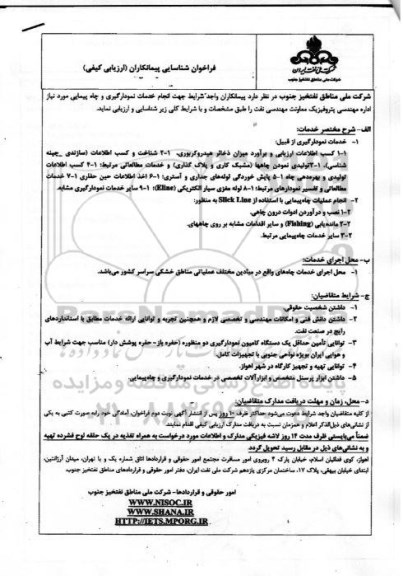 شرکت ملی نفت ایران
شرکت ملی مناطق نفتخیز جنوب
فراخوان شناسایی پیمانکاران (ارزیابی کیفی)
شرکت ملی مناطق نفتخیز جنوب در نظر دارد پیمانکاران واجد شرایط جهت انجام خدمات نمودارگیری و چاه پیمایی مورد نیاز
اداره مهندسی پتروفیزیک معاونت مهندسی نفت را طبق مشخصات و با شرایط کلی زیر شناسایی و ارزیابی نماید.
الف- شرح مختصر خدمات:
۱- خدمات نمودارگیری از قبیل:
۱-۱ کسب اطلاعات ارزیابی و برآورد میزان ذخائر هیدروکربوری، ۲-۱ شناخت و کسب اطلاعات (سازندی _چینه
شناسی)، ۳-۱تولیدی نمودن چاهها (مشبک کاری و پلاگ گذاری) و خدمات مطالعاتی مرتبط؛ ۴-۱ کسب اطلاعات
تولیدی و بهره‌دهی چاه ۵-۱ پایش خوردگی لوله‌های جداری و آستری؛ ۶-۱ اخذ اطلاعات حین حفاری ۷-۱ خدمات
مطالعاتی و تفسیر نمودارهای مرتبط؛ ۸-۱ لوله مغزی سیار الکتریکی (Eline)؛ ۹-۱ سایر خدمات نمودارگیری مشابه.
۲- انجام عملیات چاه‌پیمایی با استفاده از Slick Line به منظور:
۱-۲ نصب و درآوردن ادوات درون چاهی.
۲-۲ مانده‌یابی (Fishing) و سایر اقدامات مشابه بر روی چاههای.
۳-۲ سایر خدمات چاه‌پیمایی مرتبط.
ب- محل اجرای خدمات:
۱- محل اجرای خدمات چاه‌های واقع در میادین مختلف عملیاتی مناطق خشکی سراسر کشور می‌باشد.
ج- شرایط متقاضیان:
۱- داشتن شخصیت حقوقی.
۲- داشتن دانش فنی و امکانات مهندسی و تخصصی لازم و همچنین تجربه و توانایی ارائه خدمات مطابق با استانداردهای
رایج در صنعت نفت.
۳- توانایی تأمین حداقل یک دستگاه کامیون نمودارگیری دو منظوره (حفره باز- حفره پوشش دار) مناسب جهت شرایط آب
و هوایی ایران بویژه نواحی جنوبی با تجهیزات کامل.
۴- توانایی تهیه و تجهیز کارگاه در شهر اهواز.
۵- داشتن ابزار پرسنل متخصص و ابزارآلات تخصصی در خدمات نمودارگیری و چاه‌پیمایی.
د- محل، زمان و مهلت دریافت مدارک متقاضیان:
از کلیه متقاضیان واجد شرایط دعوت می‌شود حداکثر ظرف ۱۰ روز پس از انتشار آگهی نوبت دوم فراخوان، آمادگی خود رابه صورت کتبی به یکی
از نشانی‌های ذیل‌الذکر اعلام و همزمان نسبت به دریافت مدارک ارزیابی کیفی اقدام نمایند.
ضمناً می‌بایستی ظرف مدت ۱۴ روز لاشه فیزیکی مدارک و اطلاعات مورد درخواست به همراه تغذیه در یک حلقه لوح فشرده تهیه
و به نشانی‌های ذیل در مقابل رسید تحویل گردد.
اهواز، کوی فدائیان اسلام، خیابان پارک ۲ روبروی امور مسافرت مجتمع امور حقوقی و قراردادها اتاق شماره یک و یا تهران، میدان آرژانتین،
ابتدای خیابان بیهقی، پلاک ۱۷، ساختمان مرکزی یازدهم شرکت ملی نفت ایران، دفتر امور حقوقی و قراردادهای مناطق نفتخیز جنوب.
امور حقوقی و قراردادها- شرکت ملی مناطق نفتخیز جنوب
WWW.NISOC.IR
WWW.SHANA.IR
HTTP://IETS.MPORG.IR